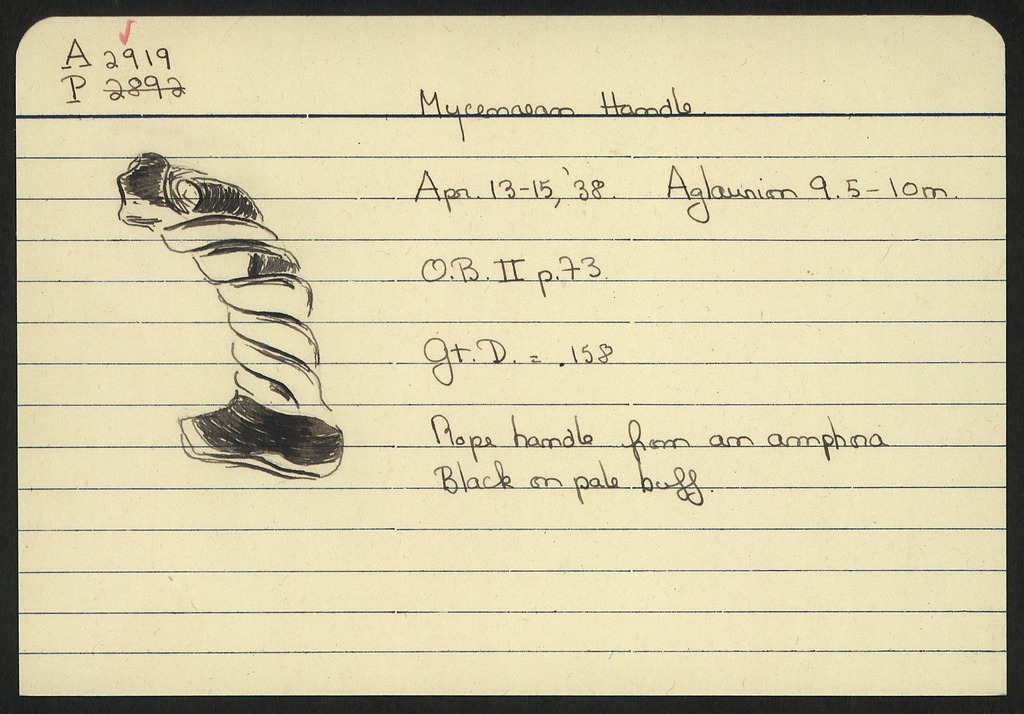 A 2919
P 2892
Mycenaean Handle.
Apr. 13-15, '38. Aglaurion 9.5-10m.
O.B. II p.73.
Gt. D. = .158
Rope handle from an amphora
Black on pale buff.